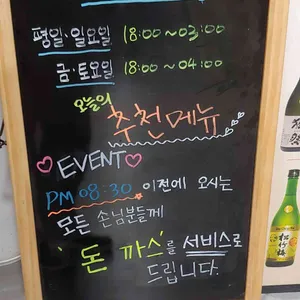 평일·일요일 18:00~03:00
금·토요일 18:00~04:00
오늘의
추천메뉴
EVENT
PM 08:30 이전에 오시는
모든 손님분들께
'돈까스'를 서비스로
드립니다.
松竹梅